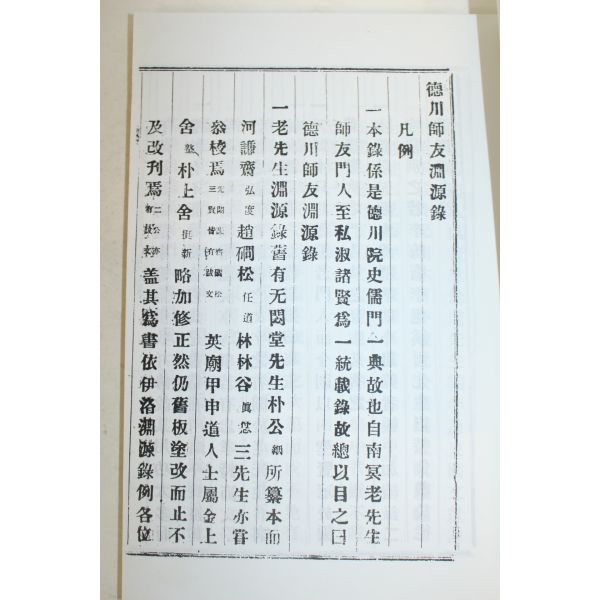 德川師友淵源錄
凡例
一本錄係是德川院史儒門一典故也自南冥老先生
師友門人至私淑諸賢爲一統載錄故總以目之曰
德川師友淵源錄
一老先生淵源錄舊有无悶堂先生朴公絪所纂本而
河謙齋弘度趙磵松任道林林谷眞怤三先生亦嘗
叅校焉无悶謙齋磵松三賢皆有跋文英廟甲申道人士屬金上
舍墪朴上舍挺新略加修正然仍舊板塗改而止不
及改刊焉二公亦有後文盖其爲書依伊洛淵源錄例各位